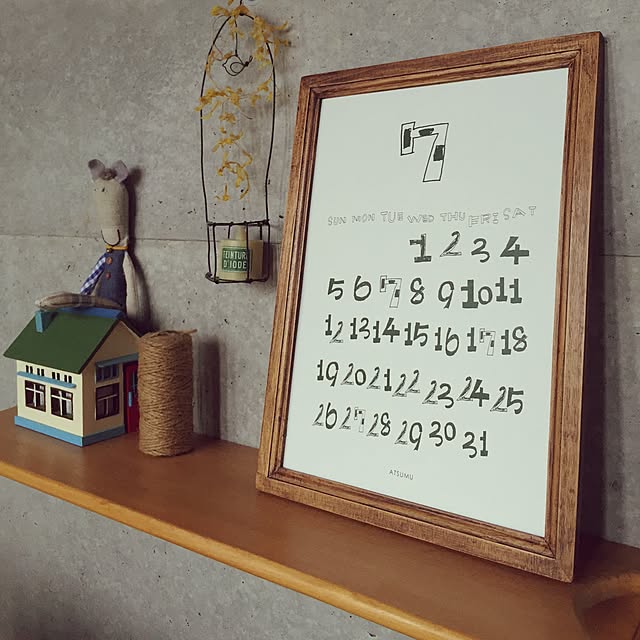 TEINTURE
D'IODE
7
SUN MON TUE WED THU FRI SAT
1 2 3 4
5 6 7 8 9 10 11
12 13 14 15 16 17 18
19 20 21 22 23 24 25
26 27 28 29 30 31
ATSUMU